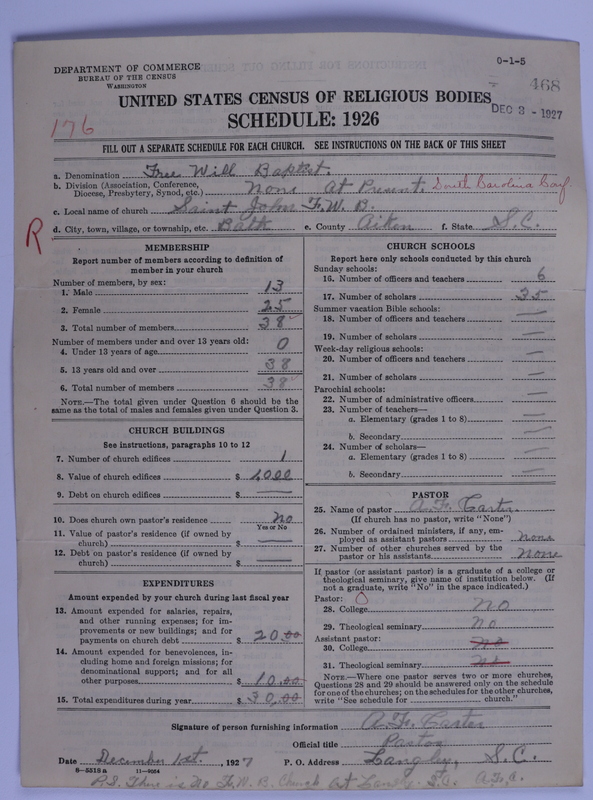 DEPARTMENT OF COMMERCE
BUREAU OF THE CENSUS
WASHINGTON
0-1-5
468
DEC 3 - 1927
UNITED STATES CENSUS OF RELIGIOUS BODIES
SCHEDULE: 1926
176
FILL OUT A SEPARATE SCHEDULE FOR EACH CHURCH. SEE INSTRUCTIONS ON THE BACK OF THIS SHEET
a. Denomination Free Will Baptist.
b. Division (Association, Conference, Diocese, Presbytery, Synod, etc.) None At Present South Carolina Conf.
c. Local name of church Saint John F. W. B.
d. City, town, village, or township, etc. Bath e. County Aiken f. State S.C.
R
MEMBERSHIP
Report number of members according to definition of
member in your church
Number of members, by sex:
1. Male 13
2. Female 25
3. Total number of members 38
Number of members under and over 13 years old:
4. Under 13 years of age 0
5. 13 years old and over 38
6. Total number of members 38
NOTE.—The total given under Question 6 should be
same as the total of males and females given under Question 3.
CHURCH BUILDINGS
See instructions, paragraphs 10 to 12
7. Number of church edifices 1
8. Value of church edifices $ 1,000
9. Debt on church edifices $ —
10. Does church own pastor's residence No
Yes or No
11. Value of pastor's residence (if owned by
church) $ —
12. Debt on pastor's residence (if owned by
church) $ —
EXPENDITURES
Amount expended by your church during last fiscal year
13. Amount expended for salaries, repairs,
and other running expenses; for im-
provements or new buildings; and for
payments on church debt $ 20.00
14. Amount expended for benevolences, in-
cluding home and foreign missions; for
denominational support; and for all
other purposes $ 10.00
15. Total expenditures during year $ 30.00
CHURCH SCHOOLS
Report here only schools conducted by this church
Sunday schools:
16. Number of officers and teachers 6
17. Number of scholars 35
Summer vacation Bible schools:
18. Number of officers and teachers —
19. Number of scholars —
Week-day religious schools:
20. Number of officers and teachers —
21. Number of scholars —
Parochial schools:
22. Number of administrative officers —
23. Number of teachers—
a. Elementary (grades 1 to 8) —
b. Secondary —
24. Number of scholars—
a. Elementary (grades 1 to 8) —
b. Secondary —
PASTOR
25. Name of pastor A. F. Carter.
(If church has no pastor, write "None")
26. Number of ordained ministers, if any, em-
ployed as assistant pastors None
27. Number of other churches served by the
pastor or his assistants None
If pastor (or assistant pastor) is a graduate of a college or
theological seminary, give name of institution below. (If
not a graduate, write "No" in the space indicated.)
Pastor: O
28. College No
29. Theological seminary No
Assistant pastor:
30. College No
31. Theological seminary No
NOTE.—Where one pastor serves two or more churches,
Questions 28 and 29 should be answered only on the schedule
for one of the churches; on the schedules for the other churches,
write "See schedule for church."
Signature of person furnishing information A. F. Carter
Official title Pastor
Date December 1st. 1927 P. O. Address Langley, S.C.
8-5518a 11-9064
P.S. There is No F. W. B. Church at S.C.